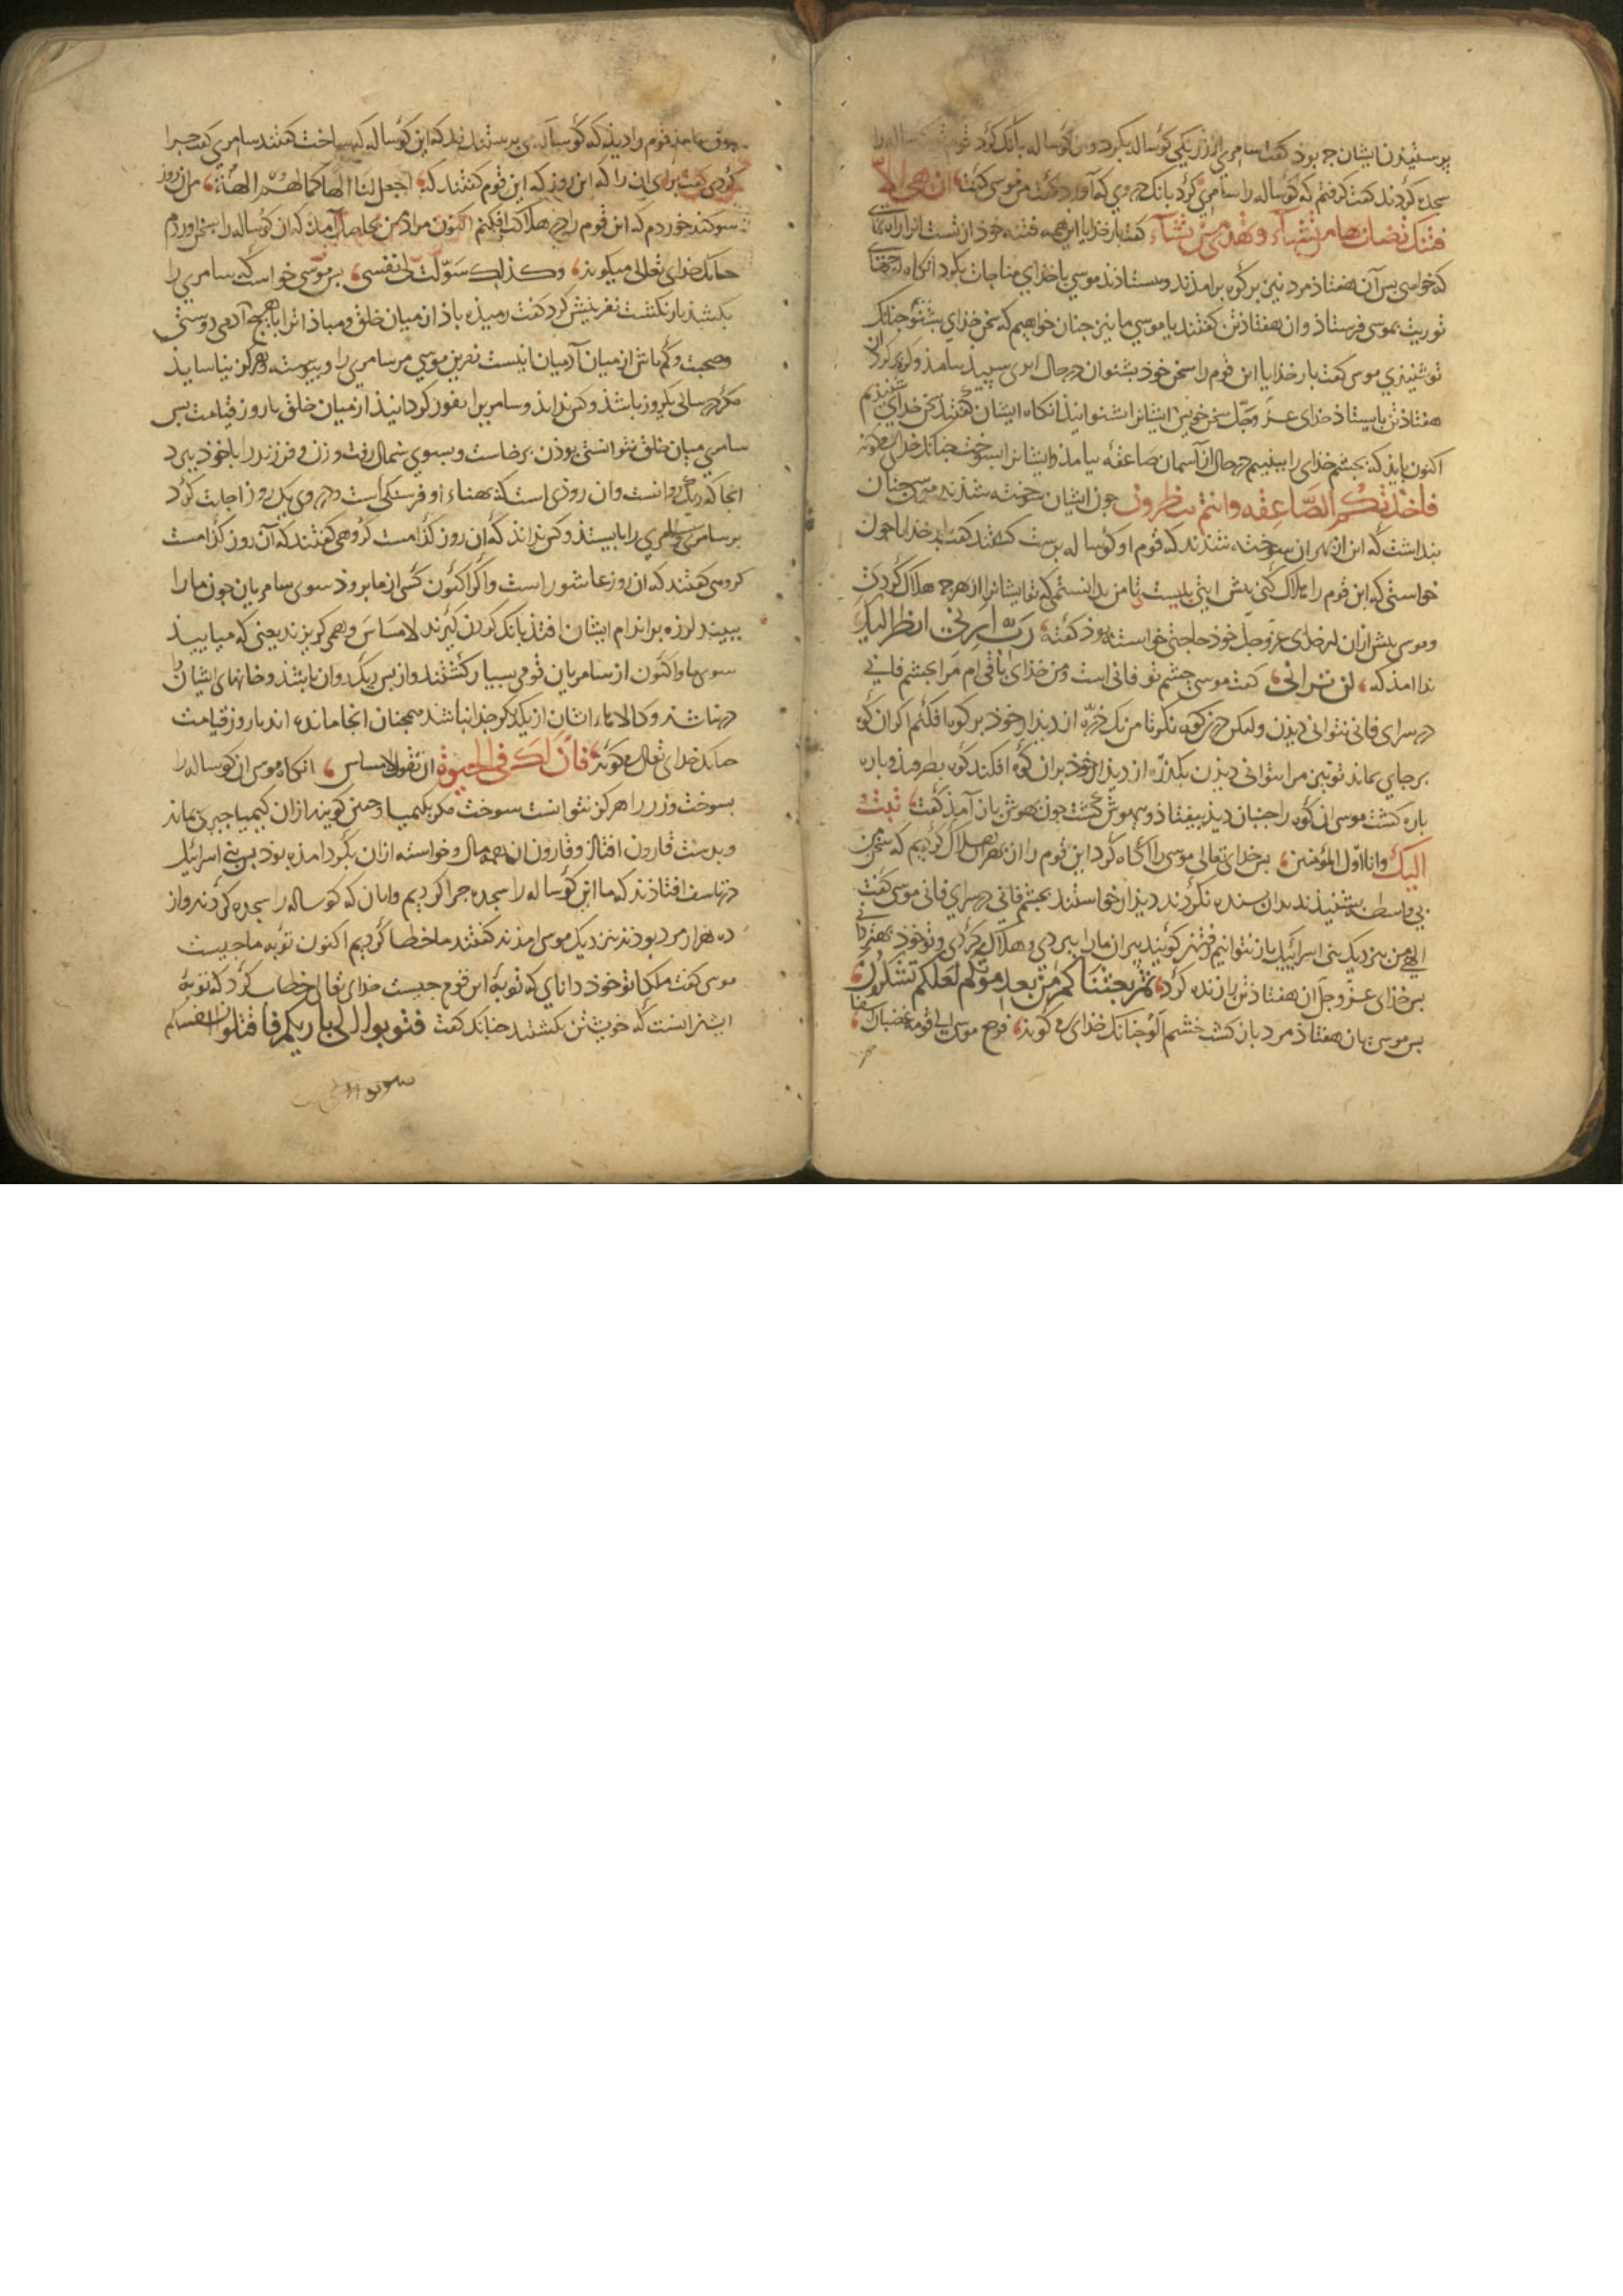 پرستیدن ایشان چه بود گفت سامری از زر یکی کوساله بکرد و من کوساله بانک کرد قوم کوساله را
سجده کردند گفت گرفتم که کوساله را سامری کرد بانک در وی که آورد گفت من موسی گفت ان هی الا
فتنتک تضل بها من تشآء و تهدی من تشآء گفت بار خدایا این همه فتنه خود از تست انرا راه نمای
که خواهی بس آن هفتاذ مرد نیز بر کوه برامذند و بیستاذند موسی با خدای مناجات بکرد انکاه
توریت بموسی فرستاذ و ان هفتاذ تن گفتند یا موسی ما نیز چنان خواهیم که سخن خدای بشنوم چنانک
تو شنیدی موسی گفت بار خدایا این قوم را سخن خود بشنوان در حال ابری سپید بیامذ و کرد
هفتاذ تن بایستاذ خدای عز و جل سخن خویش ایشانرا بشنوانیذ انکاه ایشان گفتند سخن خدای شنیدیم
اکنون بایذ که بچشم خدای را ببینیم در حال از آسمان صاعقه بیامذ و ایشانرا بسوخت چنانک خدای گوید
فاخذتکم الصاعقه و انتم تنظرون چون ایشان سوخته شذند موسی چنان
بنداشت که این از بهر آن سوخته شدند که قوم او کوساله برست گشتند گفت ای خدایا چون
خواستی که این قوم را هلاک کنی بیش ازین بایست تا من بدانستمی که تو ایشانرا از بهر چه هلاک کردی
و موسی بیش ازان از خدای عز و جل خود حاجتی خواسته بوذ گفته رب ارنی انظر الیک
ندا امذ که لن ترانی گفت موسی چشم تو فانی است و من خدای باقی ام مرا بچشم فانی
در سرای فانی نتوانی دیدن ولیکن در کوه نکر تا من یک ذره از دیدار خود بر کوه افکنم اکر ان کوه
بر جای بماند تو نیز مرا بتوانی دیدن یکذره از دیدار خوذ بران کوه افکند کوه بطرقید و باره
باره کشت موسی ان کوه را چنان دید بیفتاذ و بیهوش کشت چون هوش باز آمذ گفت تبت
الیک و انا اول المؤمنین بس خدای تعالی موسی را آگاه کرد این قوم را از بهر آن هلاک کردیم که سخن من
بی واسطه بشنیدند بدان بسنده نکردند دیدار خواستند بچشم فانی در سرای فانی موسی گفت
الهی من بنزدیک بنی اسرائیل باز نتوانم رفتن کویند پیران ما را ببردی و هلاک کردی و تو خود بهتر دانی
بس خدای عز و جل آن هفتاذ تن باز زنده کرد ثم بعثناکم من بعد موتکم لعلکم تشکرون
بس موسی بهان هفتاذ مرد باز کشت خشم آلود چنانک خدای گوید فرجع موسی الی قومه غضبان اسفا
چون بیامذ قوم را دید که کوساله می برستند بذیذ که این کوساله که ساخت گفتند سامری گفت چرا
کردی گفت برای ان را که این روز که این قوم گفتند که اجعل لنا الها کما لهم الهة من ان روز
سوکند خوردم که این قوم را در هلاکت افکنم اکنون مراد من بحاصل آمد که ان کوساله را بسخن اوردم
چنانک خدای تعالی میکوید و کذلک سولت لی نفسی بس موسی خواست که سامری را
بکشد باز نکشت نفرینش کرد گفت رمیذه باذ از میان خلق و مباذ انرا با هیچ آدمی دوستی
و صحبت و کم باش از میان آدمیان اینست نفرین موسی مر سامری را و بیوسته هرکز نیاسایذ
مکر در سالی یکروز باشد و کس نداند و سامریرا نفور کردانیذ از میان خلق تا روز قیامت بس
سامری میان خلق نتوانستی بوذن برخاست و بسوی شمال رفت و زن و فرزند را با خود ببرد
انجا که ریک روانست و ان روذی است که بهناء او فرسنکی است در وی یک روز اجابت کرد
بر سامری و سامری را بایستذ و کس نداند که ان روز کدامست گروهی گفتند که آن روز کدامست
کروهی گفتند که ان روز عاشوراست و اگر اکنون کسی از ما بروذ سوی سامریان چون ما را
ببیند لرزه بر اندام ایشان افتد بانک کردن کیرند لامساس و همی کریزند یعنی که میاییذ
سوی ما و اکنون از سامریان قومی بسیار کشتند و از بس ریک روان باشد و خانهای ایشان
در نهاشد و کالاهاء ایشان از یکدیکر جدا نباشد همچنان انجا مانده اند تا روز قیامت
چنانک خدای تعالی می گوید فان لک فی الحیوة ان تقول لامساس انکاه موسی ان کوساله را
بسوخت و زر را هرکز نتوانست سوخت مکر بکیمیا و چنین کویند ازان کیمیا چیزی بماند
و بدست قارون افتاذ و قارون ان همه مال و خواسته ازان بکرد امذه بود بس بنی اسرائیل
در تاسف افتاذند که ما این کوساله را سجده چرا کردیم و امان که کوساله را سجده کردند و از
ده هزار مرد بوذند بنزدیک موسی امذند گفتند ما خطا کردیم اکنون توبه ما چیست
موسی گفت ملکا تو خود دانای که توبهٔ این قوم چیست خدای تعالی خطاب کرد که توبهٔ
ایشان انست که خویشتن بکشند چنانک گفت فتوبوا الی باریکم فاقتلوا انفسکم